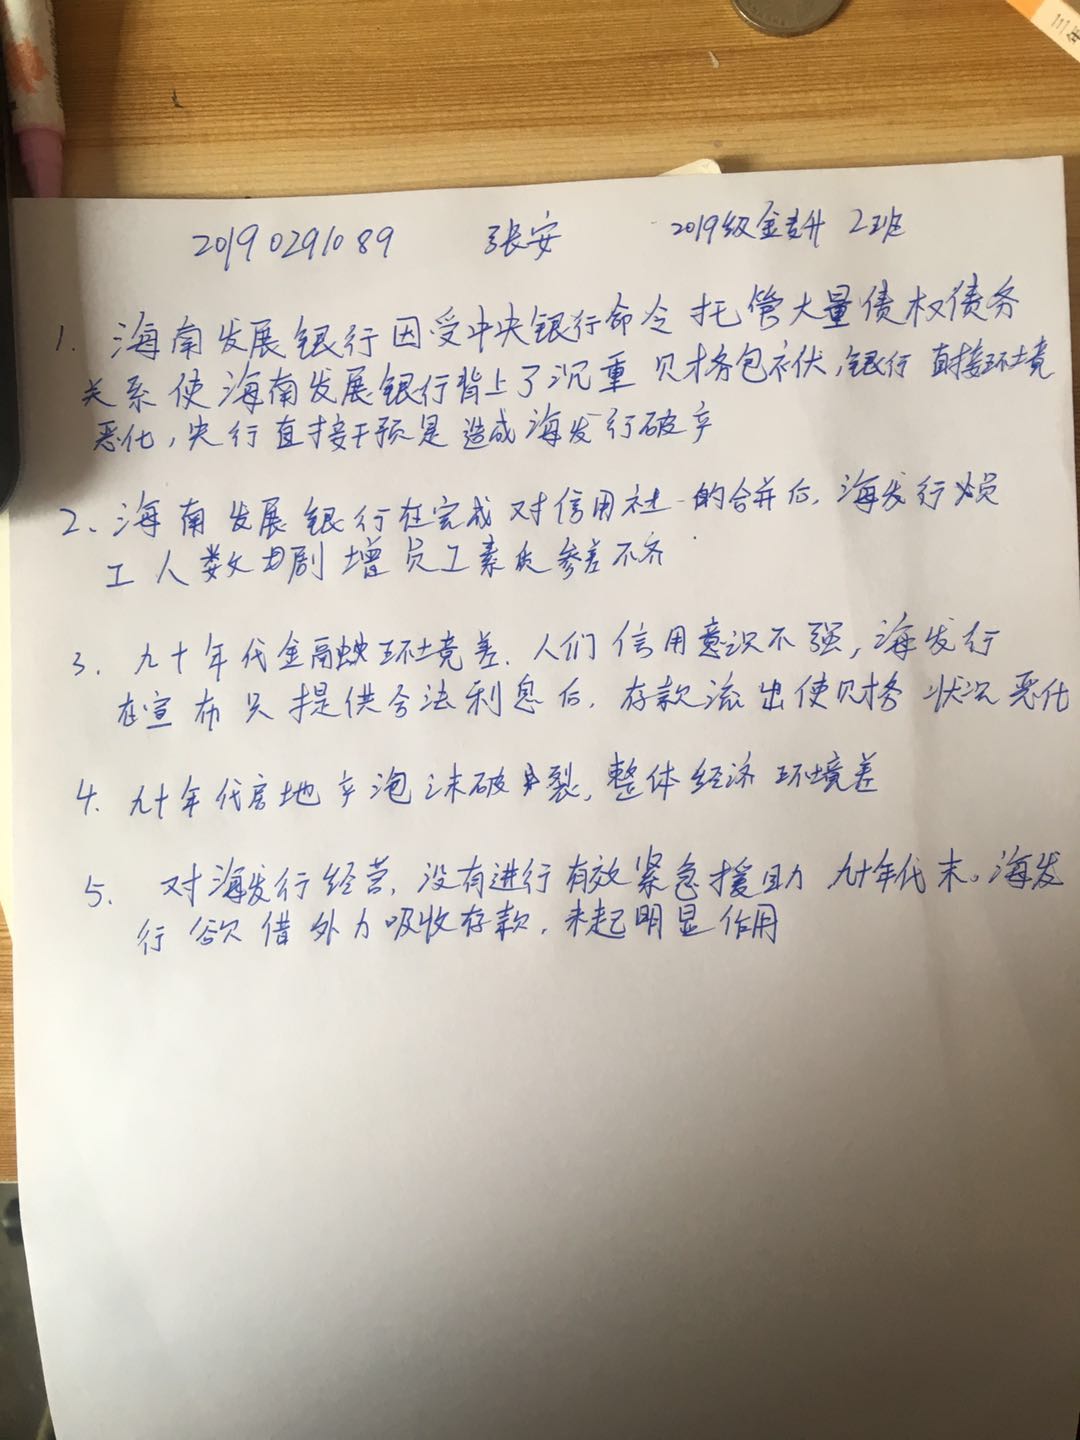 三年
20190291089 张安 2019级金专升 2班
1. 海南发展银行因受中央银行命令托管大量债权债务
关系使海南发展银行背上了沉重财务包袱,银行直接环境
恶化,央行直接干预是造成海发行破产
2、海南发展银行在完成对信用社的合并后,海发行员
工人数剧增员工素质参差不齐
3. 九十年代金融环境差,人们信用意识不强,海发行
在宣布只提供合法利息后,存款流出使财务状况恶化
4. 九十年代房地产泡沫破裂,整体经济环境差
5. 对海发行经营,没有进行有效紧急援助 九十年代末。海发
行欲借外力吸收存款,未起明显作用